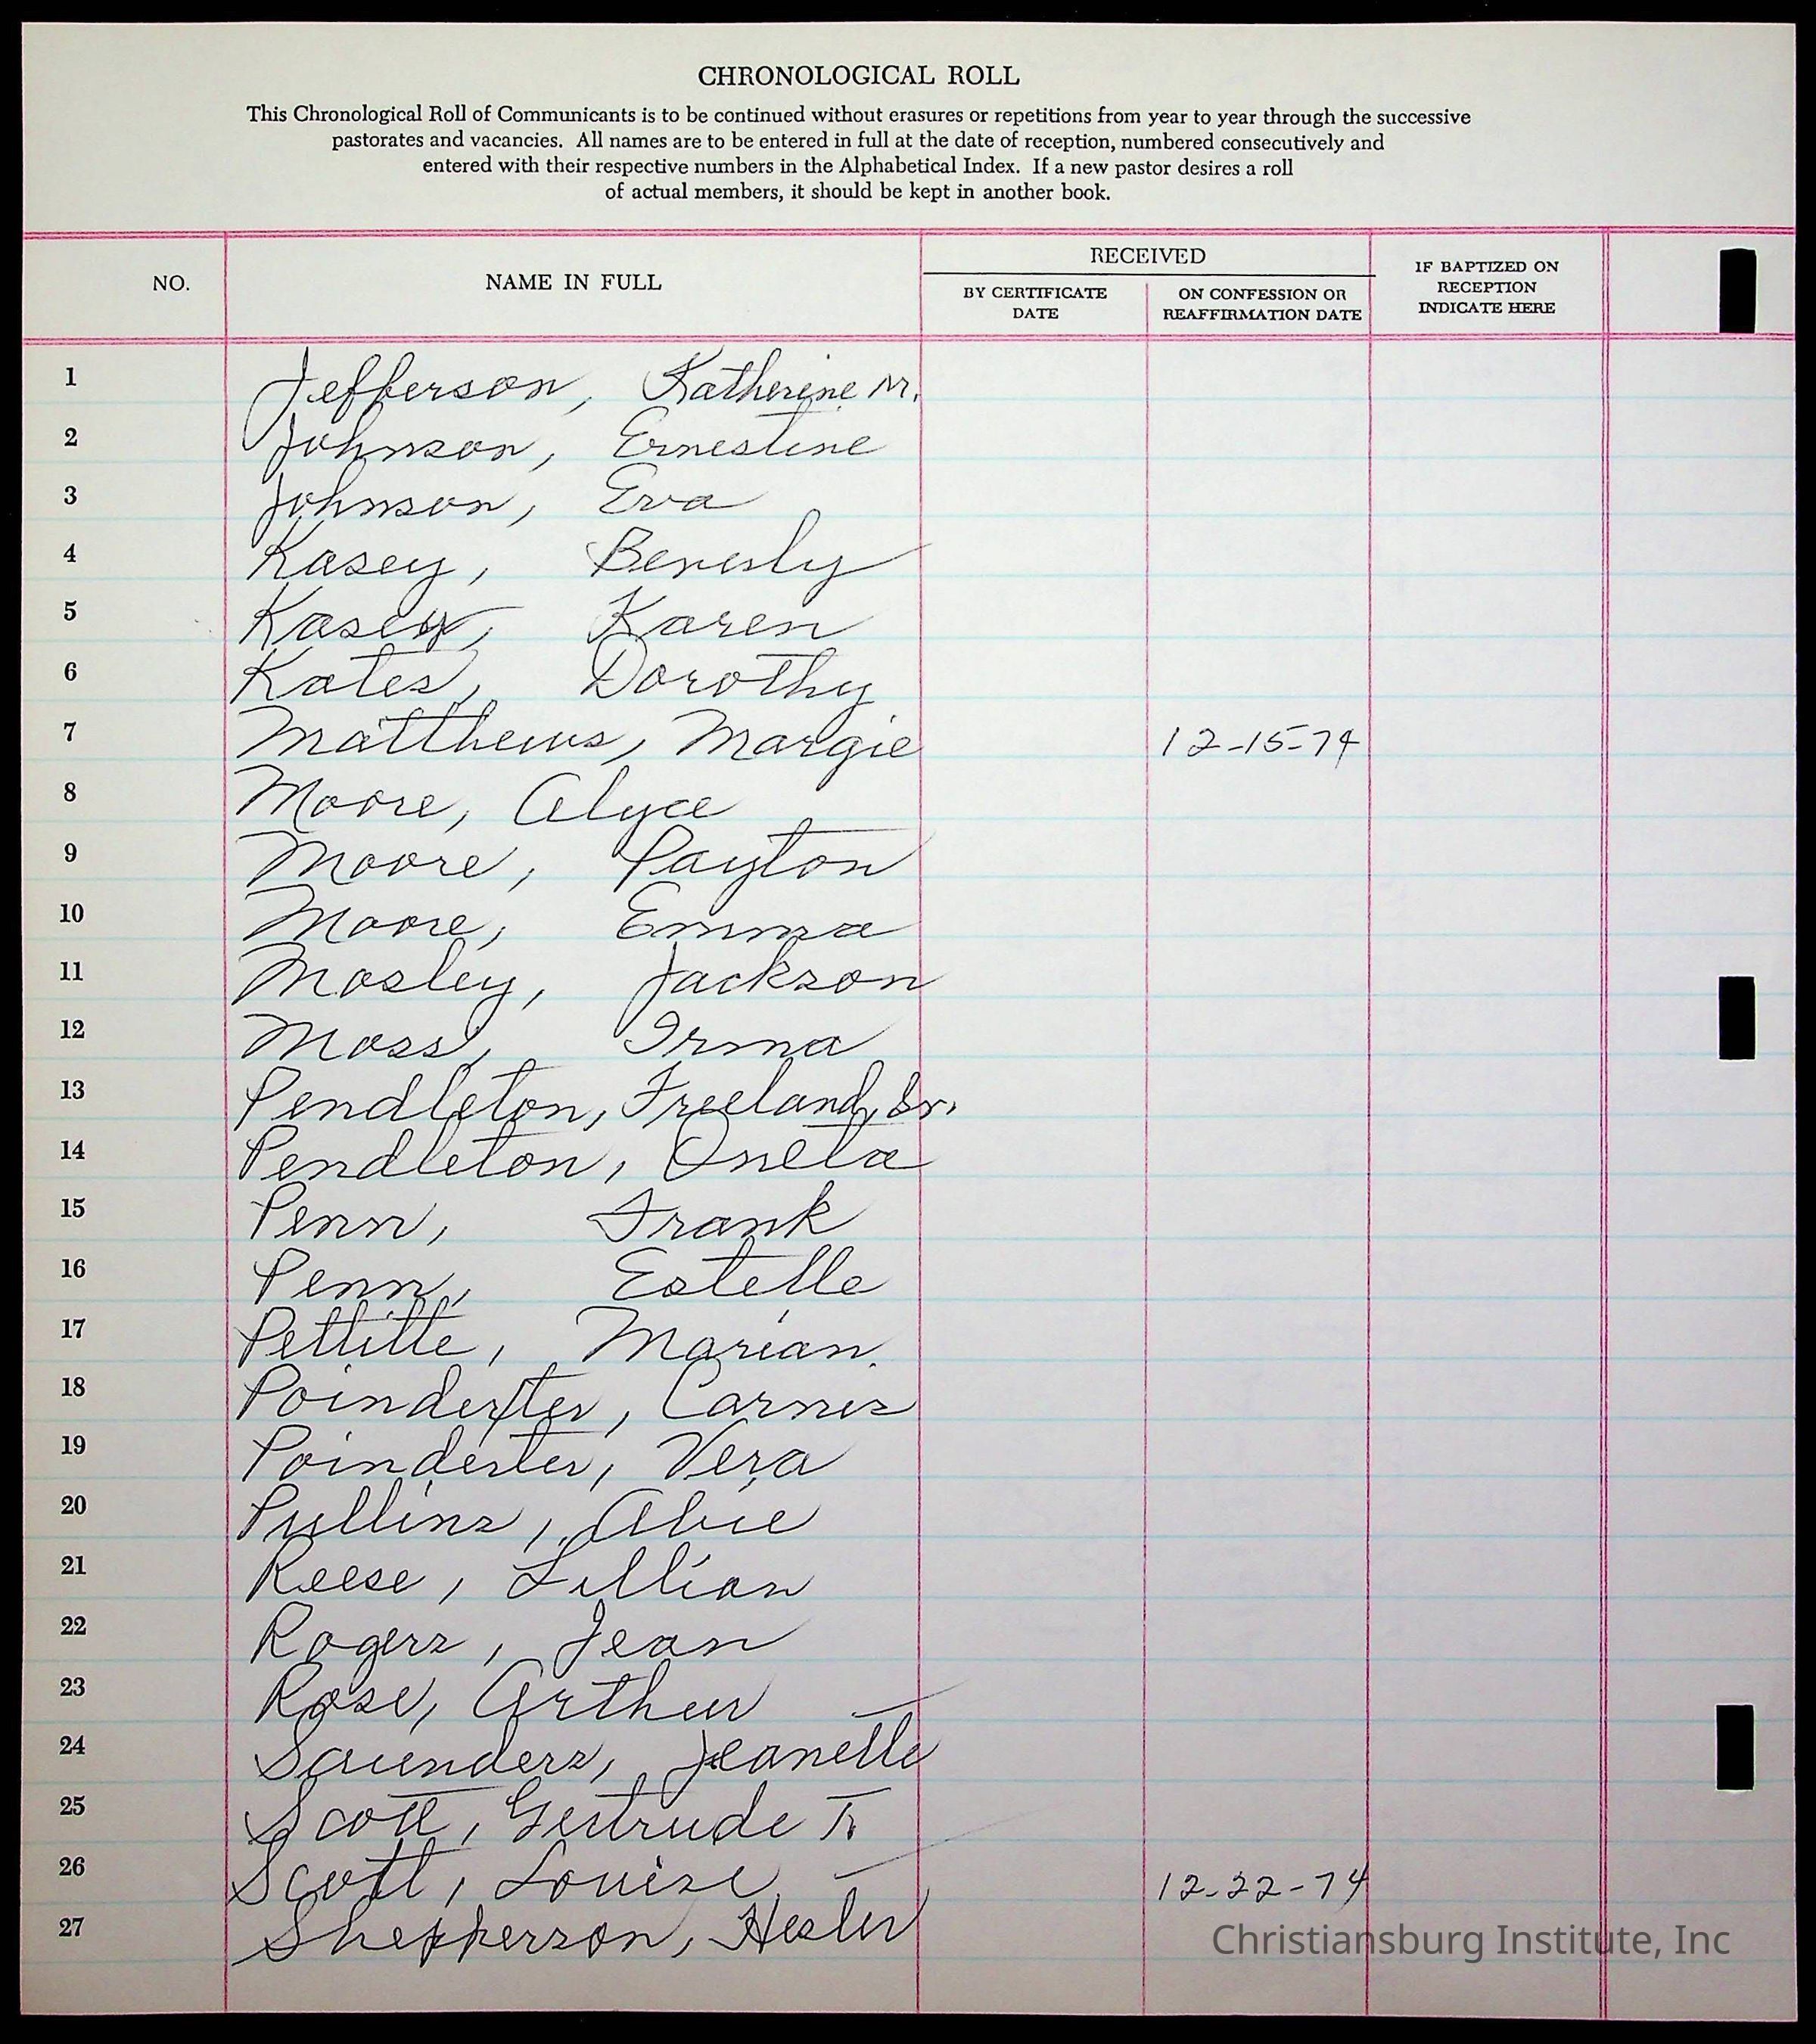 CHRONOLOGICAL ROLL
This Chronological Roll of Communicants is to be continued without erasures or repetitions from year to year through the successive
pastorates and vacancies. All names are to be entered in full at the date of reception, numbered consecutively and
entered with their respective numbers in the Alphabetical Index. If a new pastor desires a roll
of actual members, it should be kept in another book.
RECEIVED
NO. NAME IN FULL BY CERTIFICATE DATE ON CONFESSION OR REAFFIRMATION DATE IF BAPTIZED ON RECEPTION INDICATE HERE
1 Jefferson, Katherine M.
2 Johnson, Ernestine
3 Johnson, Eva
4 Kasey, Beverly
5 Kasey, Karen
6 Kates, Dorothy
7 Matthews, Margie 12-15-74
8 Moore, Alyce
9 Moore, Payton
10 Moore, Emma
11 Mosley, Jackson
12 Moss, Irma
13 Pendleton, Freeland, Sr.
14 Pendleton, Oneta
15 Penn, Frank
16 Penn, Estelle
17 Pettitte, Marian
18 Poindexter, Carnis
19 Poindexter, Vera
20 Pullins, Abie
21 Reese, Lillian
22 Rogers, Jean
23 Rose, Arthur
24 Saunders, Jeanette
25 Scott, Gertrude T.
26 Scott, Louise 12-22-74
27 Shepperson, Hester
Christiansburg Institute, Inc